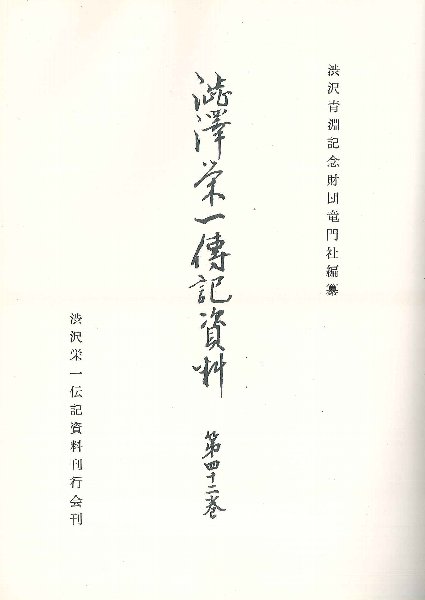 渋沢青淵記念財団竜門社編纂
澁澤栄一傳記資料 第四十二巻
渋沢栄一伝記資料刊行会刊